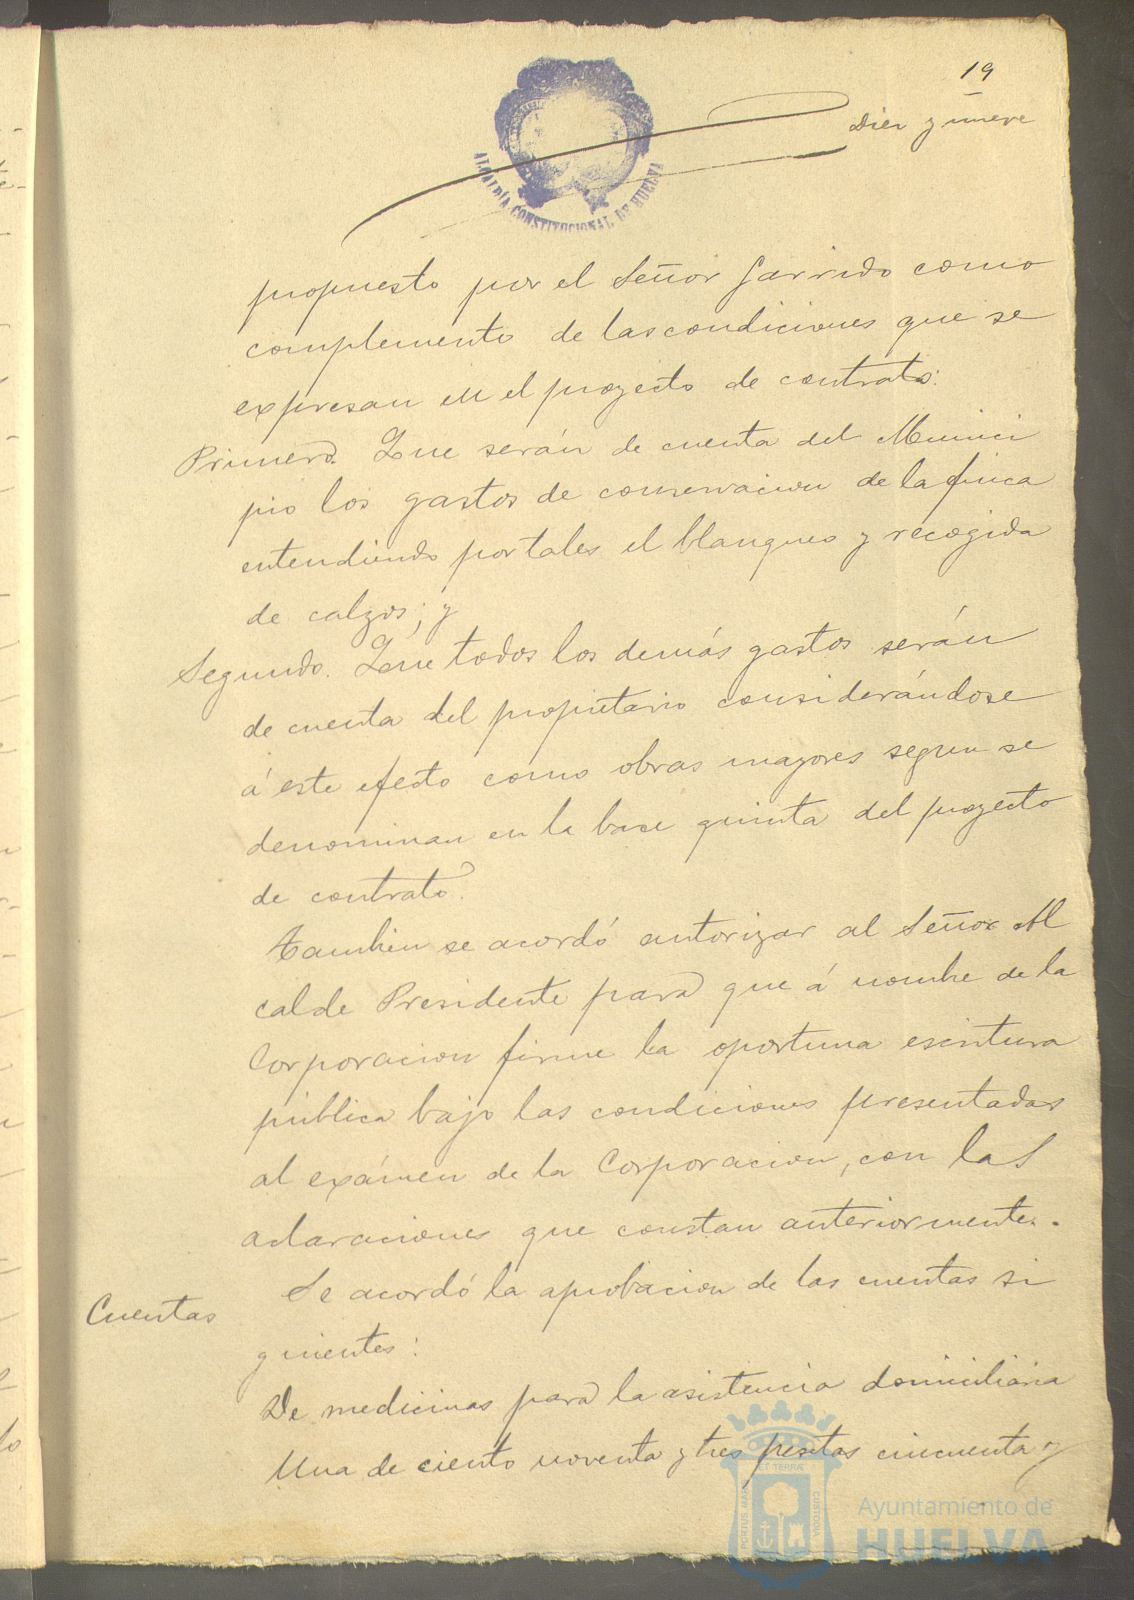 19
Diez y nueve
ALCALDÍA CONSTITUCIONAL DE HUELVA
propuesto por el Señor Garrido como
complemento de las condiciones que se
expresan en el proyecto de contrato:
Primero. Que serán de cuenta del Munici
pio los gastos de conservacion de la finca
entendiendo por tales el blanqueo y recogida
de calzos; y
Segundo. Que todos los demás gastos serán
de cuenta del propietario considerándose
á este efecto como obras mayores segun se
denominan en la base quinta del proyecto
de contrato.
Tambien se acordó autorizar al Señor Al
calde Presidente para que á nombre de la
Corporacion firme la oportuna escritura
pública bajo las condiciones presentadas
al exámen de la Corporacion, con las
aclaraciones que constan anteriormente.
Cuentas
Se acordó la aprobacion de las cuentas si
guientes:
De medicinas para la asistencia domiciliaria
Una de ciento noventa y tres pesetas cincuenta y
PORTUS MARIS ET TERRÆ CUSTODIA
Ayuntamiento de
HUELVA